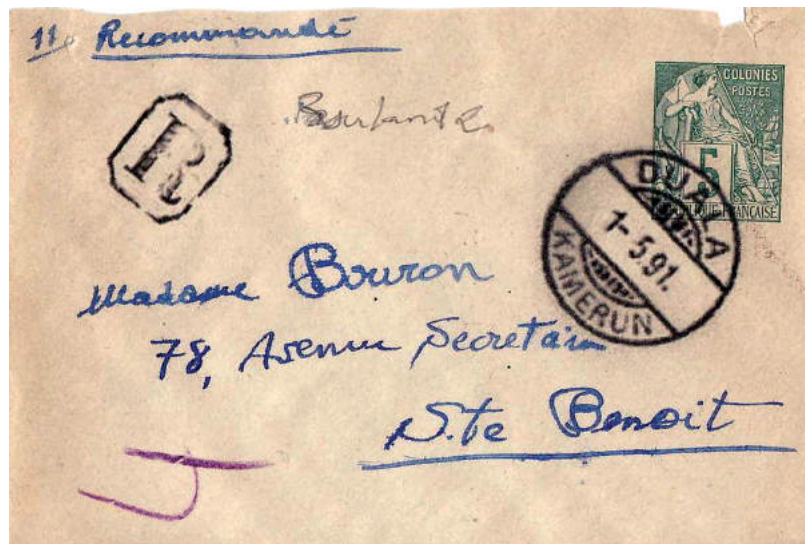 11 Recommandé
COLONIES
POSTES
R
5
DUALA
RÉPUBLIQUE FRANÇAISE
1-5.91.
KAMERUN
Madame Bouron
78, Avenue Secretain
Ste Benoit